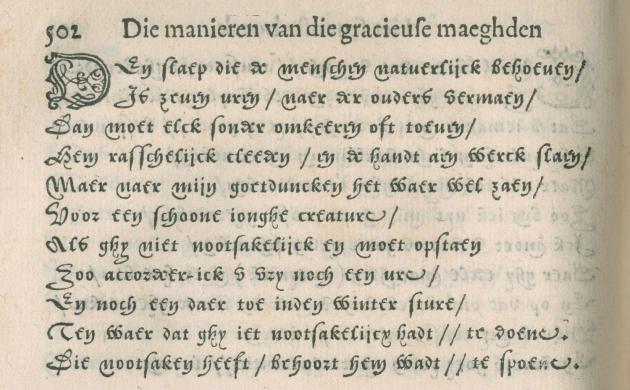 502 Die manieren van die gracieuse maeghden
DEn slaep die de menschen natuerlijck behoeuen/
Is zeuen uren / naer der ouders vermaen/
Dan moet elck sonder omkeeren oft toeuen/
Hem rasschelijck cleeden / en de handt aen werck slaen/
Maer naer mijn goetduncken het waer wel zaen/
Voor een schoone ionghe creature /
Als ghy niet nootsakelijck en moet opstaen
Zoo accordeer-ick v vry noch een ure /
En noch een daer toe inden winter sture/
Ten waer dat ghy iet nootsakelijcx hadt // te doene.
Die nootsaken heeft / behoort hem wadt // te spoene.